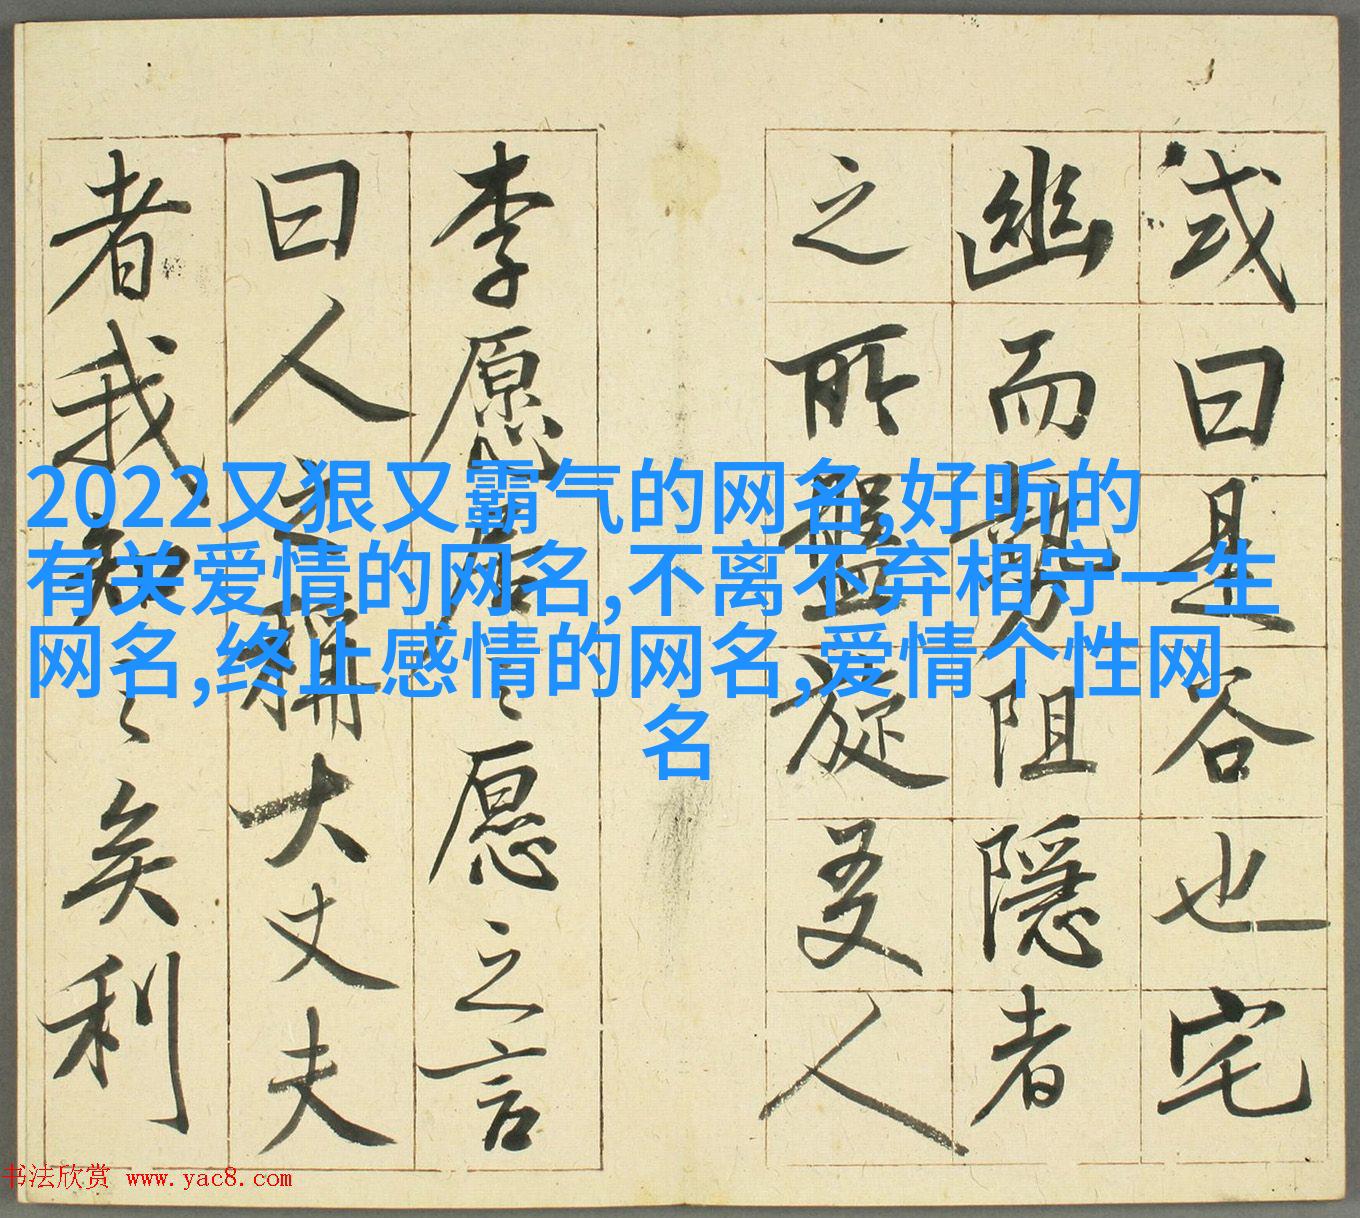 或曰是谷也宅
幽而勢阻隱者
之所盤旋友人
李愿居之愿之言
曰人之稱大丈夫
者我知之矣利
2022又狠又霸气的网名,好听的
有关爱情的网名,不离不弃相守一生
网名,终止感情的网名,爱情个性网
名
书法欣赏 www.yac8.com